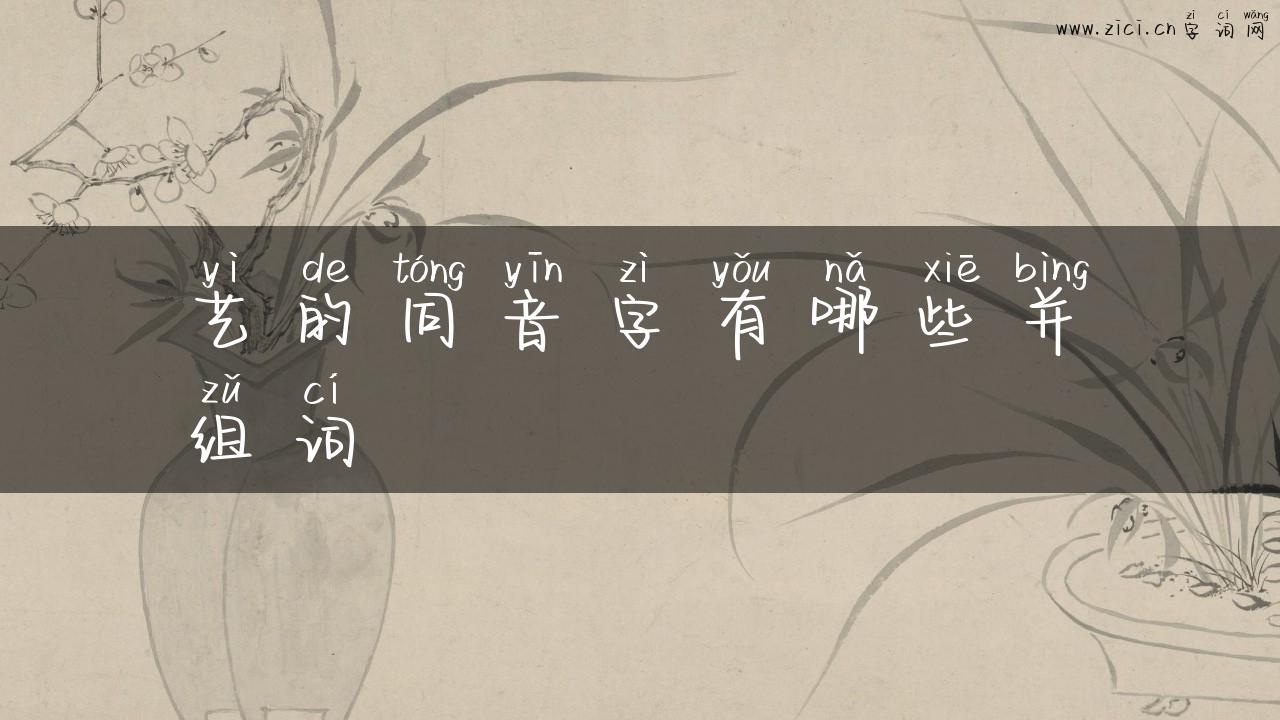 zì cí wǎng
www.zici.cn 字词网
yì de tóng yīn zì yǒu nǎ xiē bìng
艺的同音字有哪些并
zǔ cí
组词